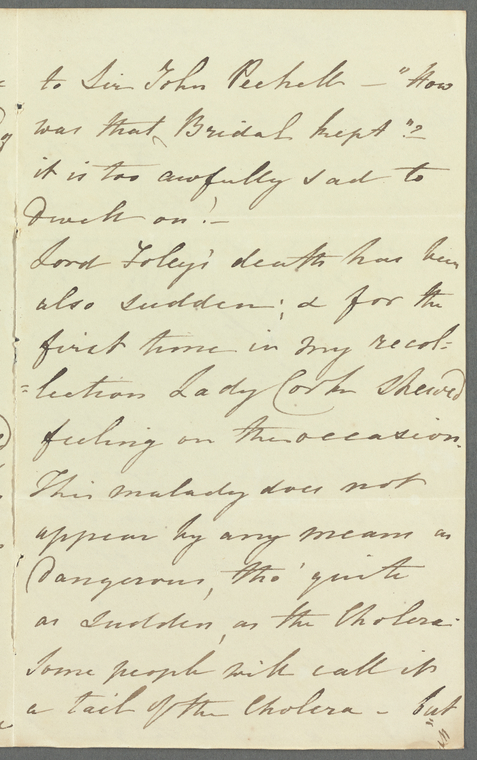 to Sir John Pechell – "How
was that Bridal kept"?
it is too awfully sad to
dwell on! –
Lord Foley's death has been
also sudden; & for the
first time in my recol=
=lection Lady Cork shewed
feeling on the occasion.
This malady does not
appear by any means as
dangerous, tho' quite
as sudden, as the Cholera.
Some people will call it
a tail of the Cholera – but